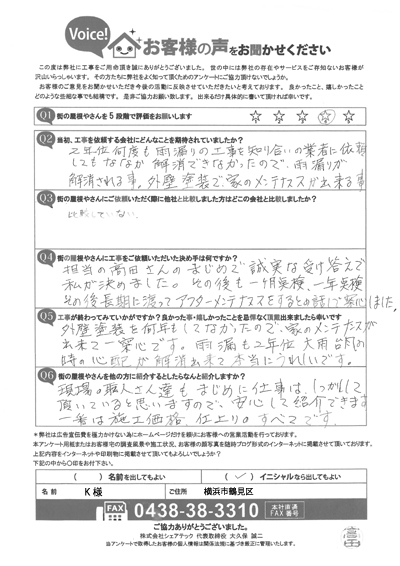 Voice!
お客様の声をお聞かせください
この度は弊社に工事をご用命頂き誠にありがとうございました。世の中には弊社の存在やサービスをご存知ないお客様が
沢山いらっしゃいます。その方たちに弊社をよく知って頂くためのアンケートにご協力頂けないでしょうか。
お客様のご意見をお聞かせいただき今後の活動に反映させていただきたいと考えております。良かったこと、嬉しかったこと
どのような些細な事でも結構です。是非ご協力お願い致します。出来るだけ具体的に書いて頂ければ幸いです。
Q1 街の屋根やさんを5段階で評価をお願いします ☆ ☆ ☆ ☆ ☆
Q2 当初、工事を依頼する会社にどんなことを期待されていましたか?
2年位何度も雨漏りの工事を知り合いの業者に依頼
してもなかなか解消できなかったので、雨漏りが
解消される事。外壁塗装で、家のメンテナスが出来る事
Q3 街の屋根やさんにご依頼いただく際に他社と比較しました方はどこの会社と比較しましたか?
比較していない。
Q4 街の屋根やさんに工事をご依頼いただいた決め手は何ですか?
担当の高田さんのまじめで誠実な受け答えで
私が決めました。その後も一ヶ月点検、一年点検
その後長期に渡ってアフターメンテナスをするとの話で安心しました。
Q5 工事が終わってみていかがですか?良かった事・嬉しかったことを忌憚なく頂戴出来ましたら幸いです
外壁塗装を何年もしてなかったので、家のメンテナスが
出来て一安心です。雨漏も2年位大雨台風の
時の心配が解消出来て本当にうれしいです。
Q6 街の屋根やさんを他の方に紹介するとしたらなんと紹介しますか?
現場の職人さん達もまじめに仕事は、しっかりして
頂いていると思いますので、安心して紹介できます
一番は施工価格、仕上りのすべてです。
＊弊社は広告宣伝費を極力かけない為にホームページだけを頼りにお客様への営業活動を行っております。
本アンケート用紙またはお客様宅の調査風景や施工状況、お客様の顔写真を随時ブログ形式のインターネットに掲載させて頂いております。
上記内容をインターネットや印刷物に掲載させて頂いてもよろしいでしょうか?
下記の中から○印をお付け下さい。
( ) 名前を出してもよい ( ✓ ) イニシャルなら出してもよい
名 前 K様 ご住所 横浜市鶴見区
FAX 0438-38-3310 本社直通 FAX番号
ご協力ありがとうございました。
株式会社シェアテック 代表取締役 大久保 誠二
当アンケートで取得したお客様の個人情報は関係法規に基づき厳正に管理いたします。
高田